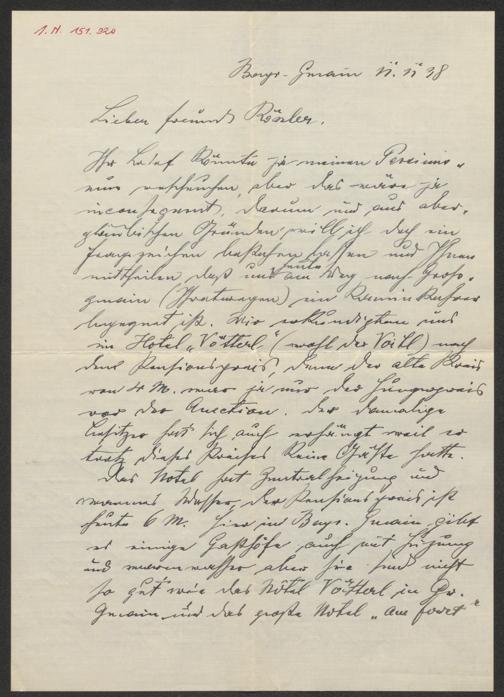 J. N. 151.920
Bayr. Gmain 12. 12 38
Lieber Freund Rösler.
Ihr Brief könnte ja meinen Pessimis-
mus verscheuchen, aber das wäre ja
inconsequent. Darum und aus aber-
gläubischen Gründen will ich doch ein
Fragezeichen bestehen lassen und Ihnen
mittheilen daß uns heute am Weg nach Groß-
gmain (Grenzwegen) ein Kaminkehrer
begegnet ist. Wir erkundigten uns
im Hotel „Vötterl" (wohl der Voitl) nach
dem Pensionspreis, denn der alte Preis
von 4 M. war ja nur der Hungerpreis
vor der Auction. Der damalige
Besitzer hat sich auch erhängt weil er
trotz dieses Preises keine Gäste hatte.
Das Hotel hat Zentralheizung und
warmes Wasser, der Pensionspreis ist
heute 6 M. Hier in Bayr. Gmain gibt
es einige Gasthöfe auch mit Heizung
und warmwasser aber sie sind nicht
so gut wie das Hôtel Vötterl in Gr.
Gmain und das große Hotel „am Forst"